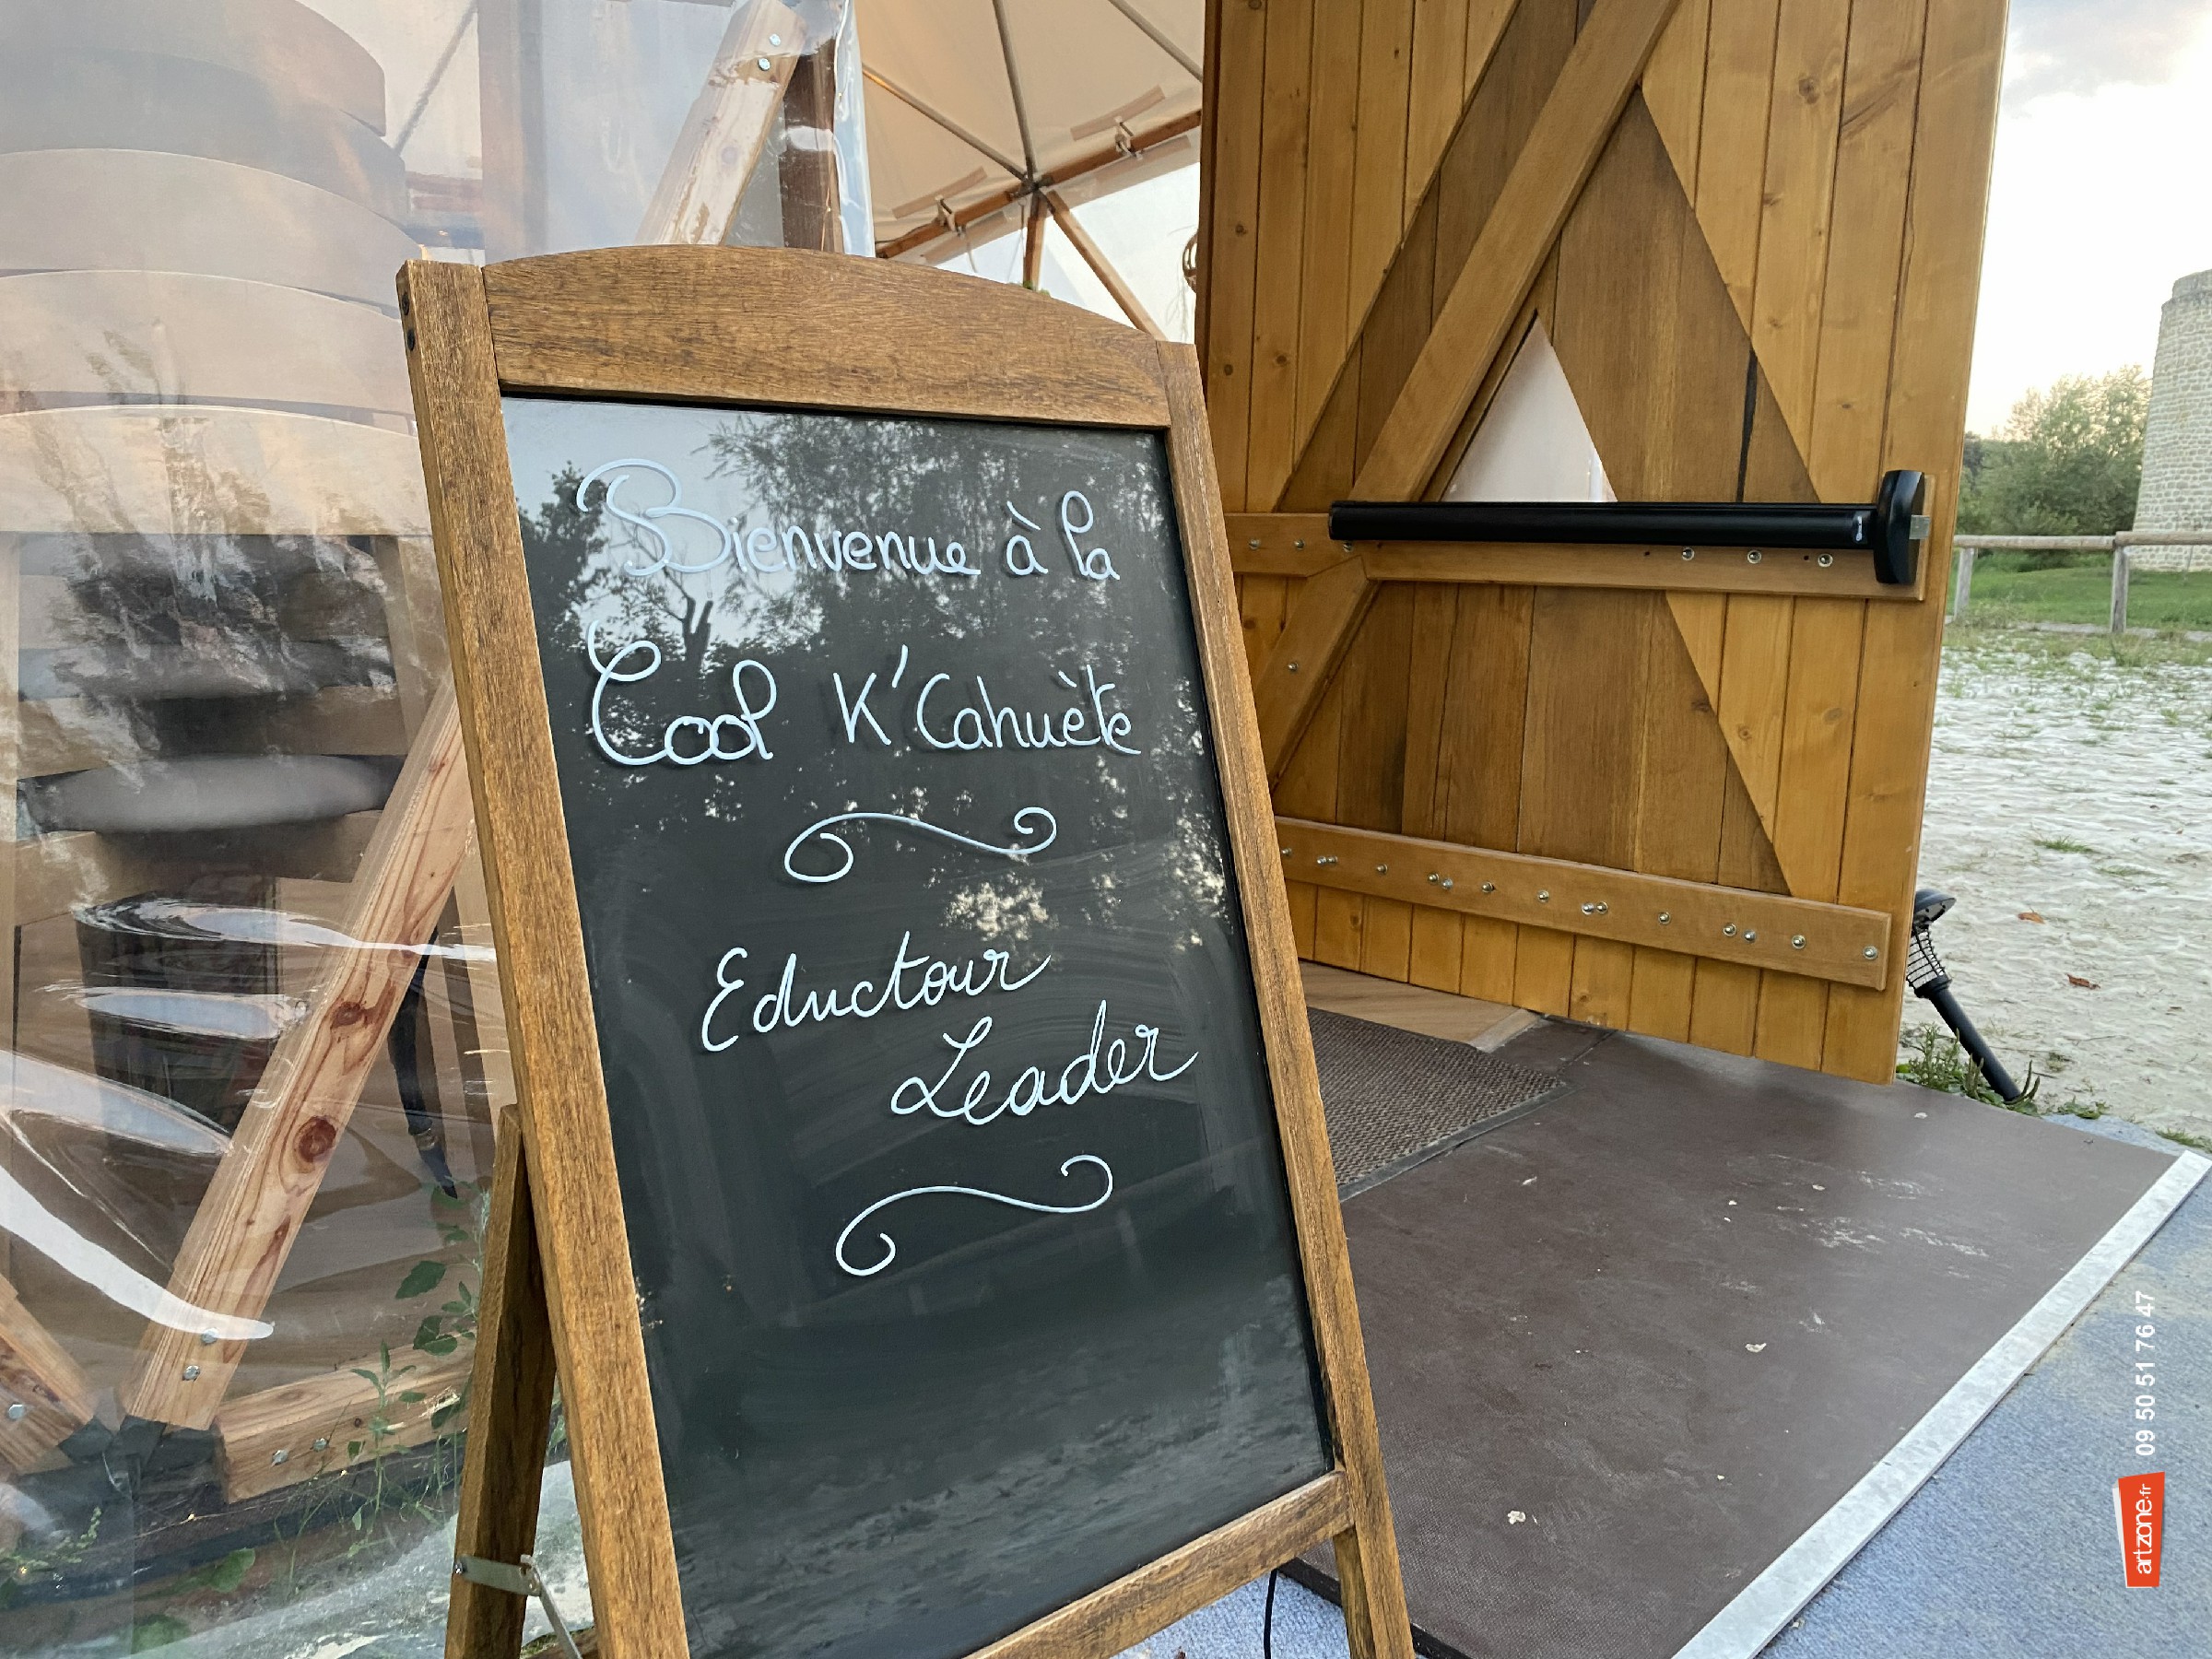 Bienvenue à la
Cool K'Cahuète
Eductour
Leader
09 50 51 76 47
artzone.fr